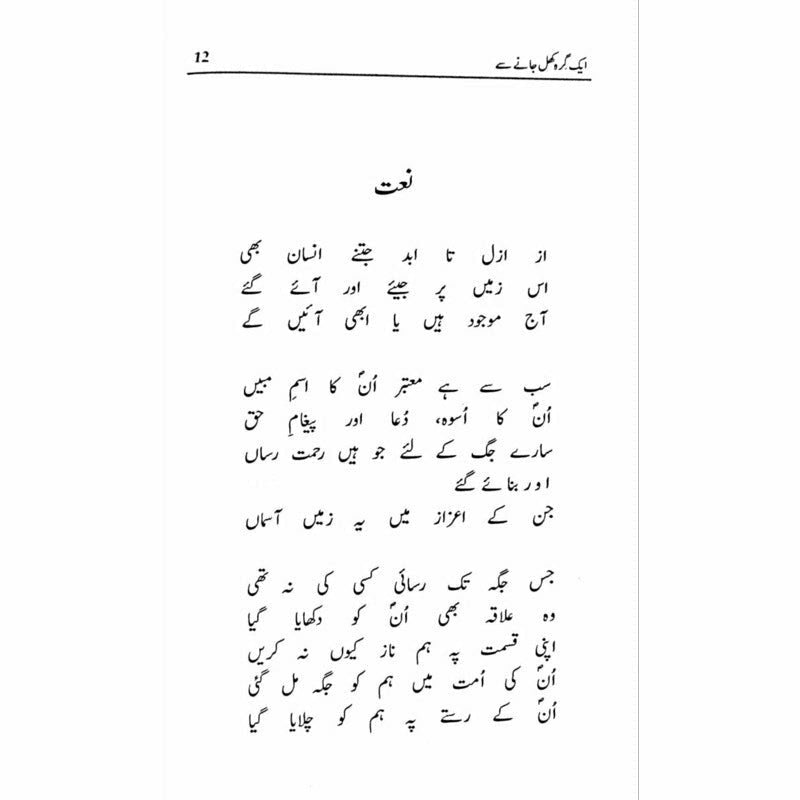 ایک گرہ کھل جانے سے 12
نعت
از ازل تا ابد جتنے انسان بھی
اس زمیں پر جیئے اور آئے گئے
آج موجود ہیں یا ابھی آئیں گے
سب سے ہے معتبر اُنؐ کا اسمِ مبیں
اُنؐ کا اُسوہ، دُعا اور پیغامِ حق
سارے جگ کے لئے جو ہیں رحمت رساں
اور بنائے گئے
جن کے اعزاز میں یہ زمیں آسماں
جس جگہ تک رسائی کسی کی نہ تھی
وہ علاقہ بھی اُنؐ کو دکھایا گیا
اپنی قسمت پہ ہم ناز کیوں نہ کریں
اُنؐ کی اُمت میں ہم کو جگہ مل گئی
اُنؐ کے رستے پہ ہم کو چلایا گیا